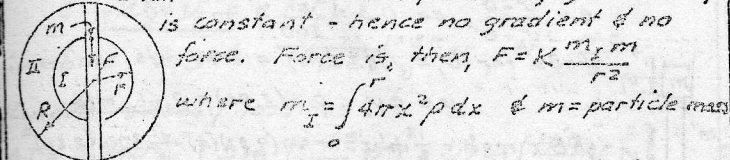 is constant - hence no gradient & no
force. Force is, then, F = K m_I m / r²
where m_I = ∫₀ʳ 4πx²ρdx & m = particle mass
m
II
I
F
r
R